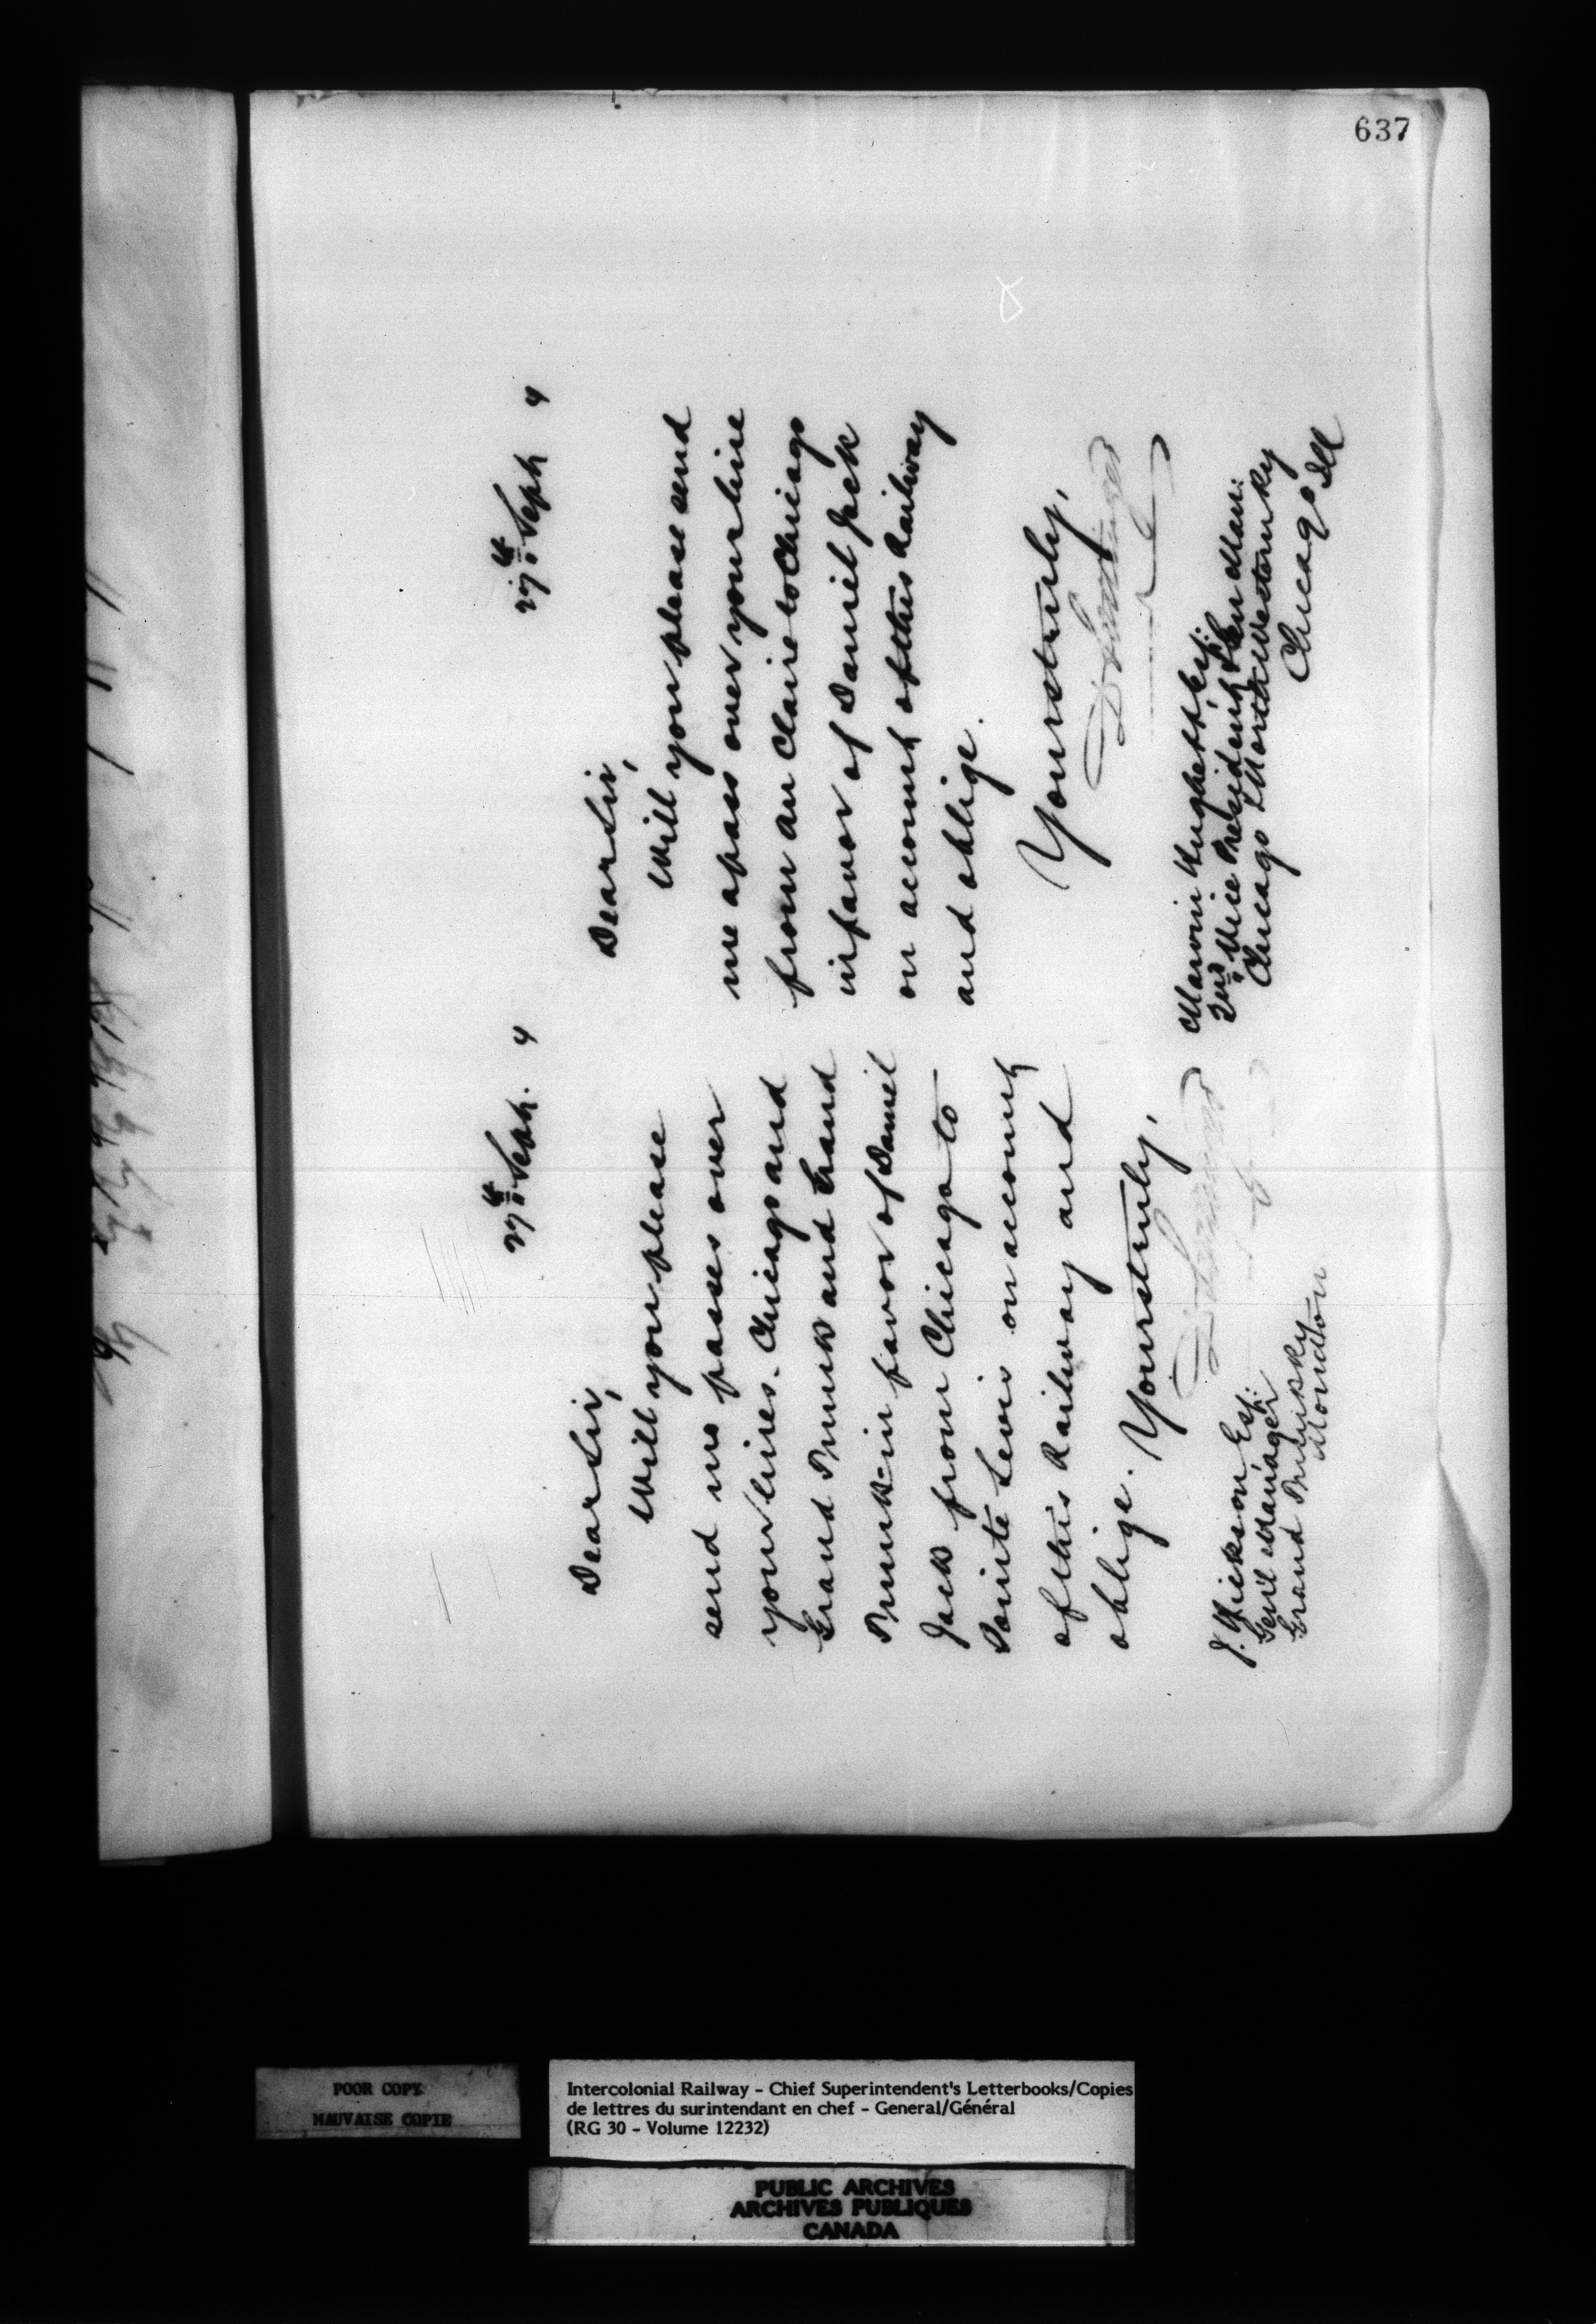 637
27th Sept. 4
Dear Sir,
Will you please
send me passes over
your lines - Chicago and
Grand Trunk and Grand
Trunk - in favor of Daniel
Jack from Chicago to
Pointe Levis on account
of this Railway and
oblige. Yours truly,
J. Hickson, Esq.
Gen'l Manager
Grand Trunk Ry
27th Sept 4
Dear Sir,
Will you please send
me a pass over your line
from Eau Claire to Chicago
in favor of Daniel Jack
on account of this Railway
and oblige.
Yours truly,
Marvin Hughitt, Esq.
2nd Vice President & Gen Man:
Chicago & North Western Ry
Chicago Ill
POOR COPY
MAUVAISE COPIE
Intercolonial Railway - Chief Superintendent's Letterbooks/Copies
de lettres du surintendant en chef - General/Général
(RG 30 - Volume 12232)
PUBLIC ARCHIVES
ARCHIVES PUBLIQUES
CANADA